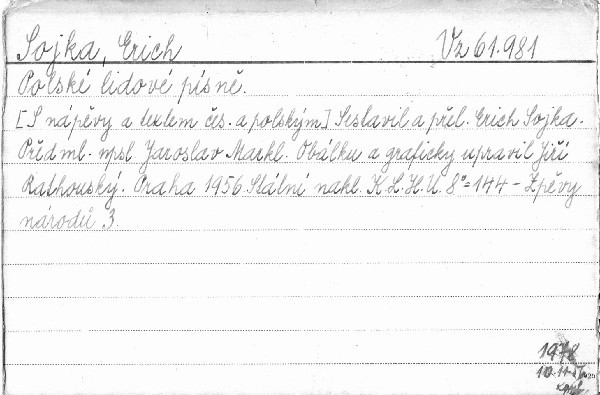 Sojka, Erich Vz 61.981
Polské lidové písně.
[S nápěvy a textem čes. a polským] Sestavil a přel. Erich Sojka.
Předml. napsl Jaroslav Markl. Obálku a graficky upravil Jiří
Rathouský. Praha 1956. Státní nakl. K.L.H.U. 8°=144 - Zpěvy
národů 3.
1978
10.11